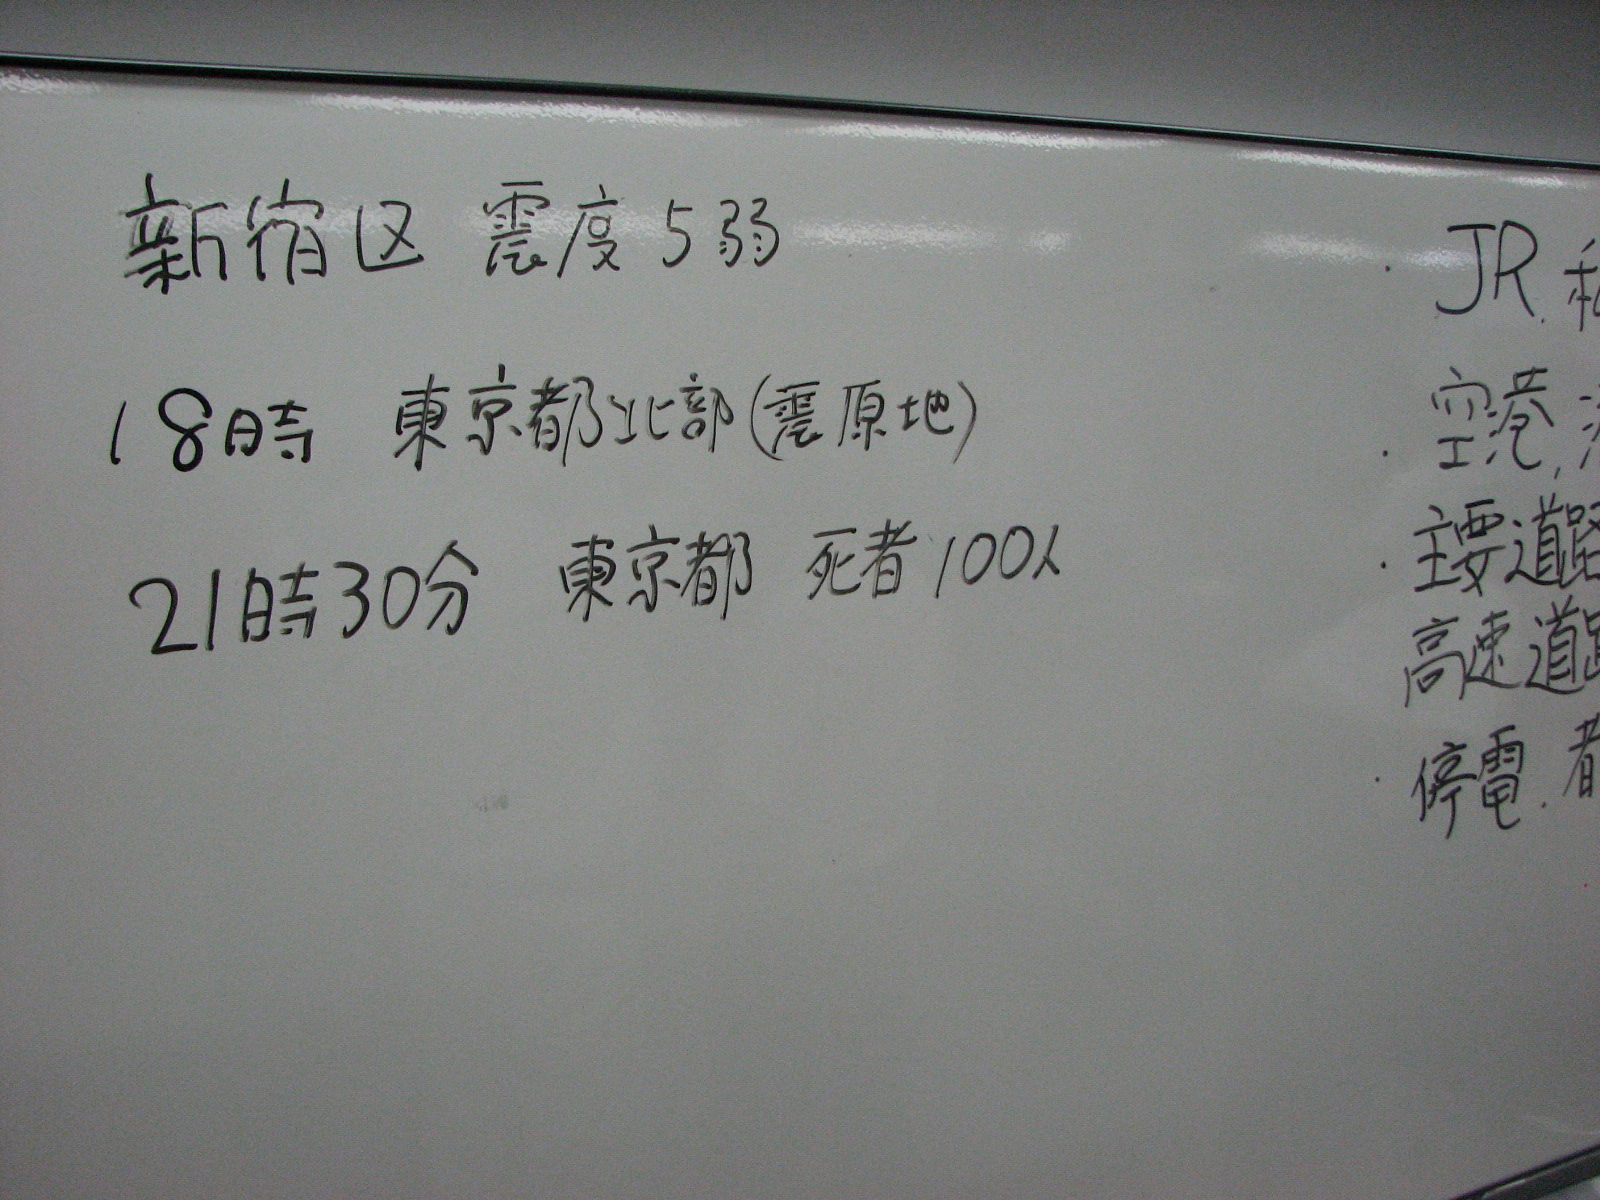 新宿区 震度5弱
18時 東京都北部(震原地)
21時30分 東京都 死者100人
・JR.
・空港,
・主要道路
高速道路
・停電.